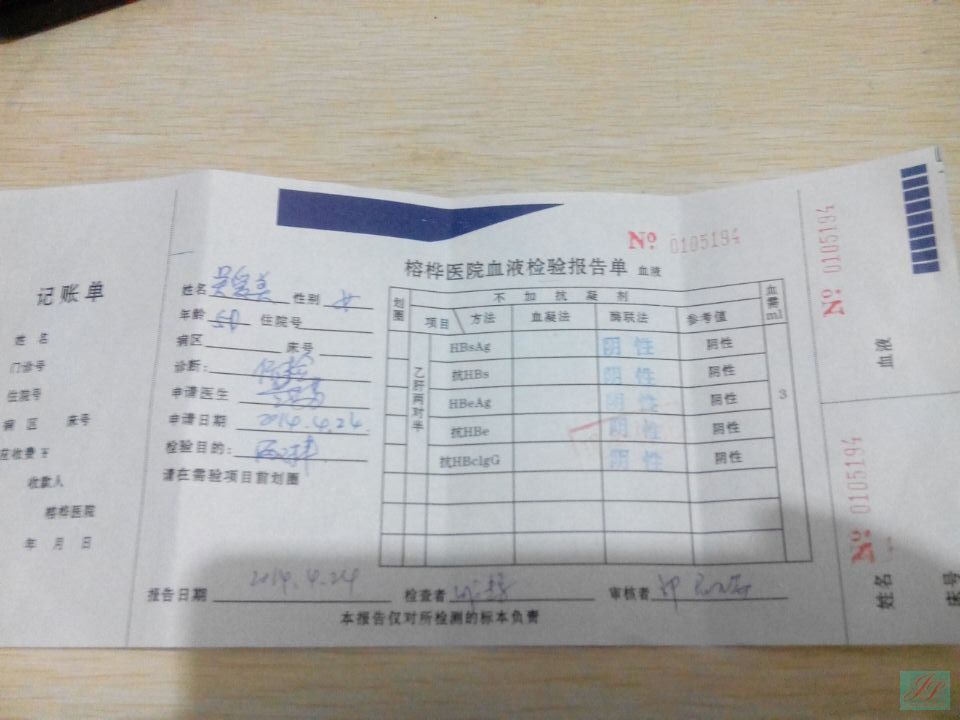 № 0105194
榕桦医院血液检验报告单 血液
记账单
姓名
门诊号
住院号
病区 床号
应收费￥
收款人
榕桦医院
年 月 日
姓名 性别 女
年龄 50 住院号
病区 床号
诊断:
申请医生
申请日期 2014.4.24
检验目的:
请在需验项目前划圈
划圈 不加抗凝剂 血需ml
项目 方法 血凝法 酶联法 参考值
乙肝两对半 3
HBsAg 阴性 阴性
抗HBs 阴性 阴性
HBeAg 阴性 阴性
抗HBe 阴性 阴性
抗HBcIgG 阴性 阴性
报告日期 2014.4.24 检查者 审核者
本报告仅对所检测的标本负责
№ 0105194
血液
№ 0105194
姓名
床号